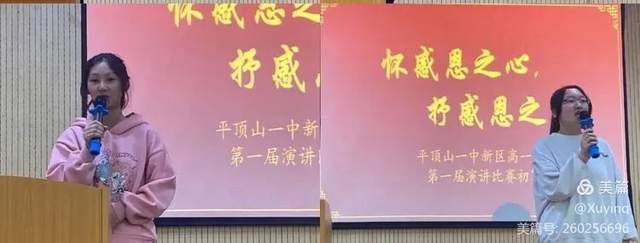 怀感恩之心
抒感
平顶山一中新
第一届演讲
怀感恩之心,
抒感恩之
平顶山一中新区高一
第一届演讲比赛初
美篇
@Xuying
美篇号: 260256696